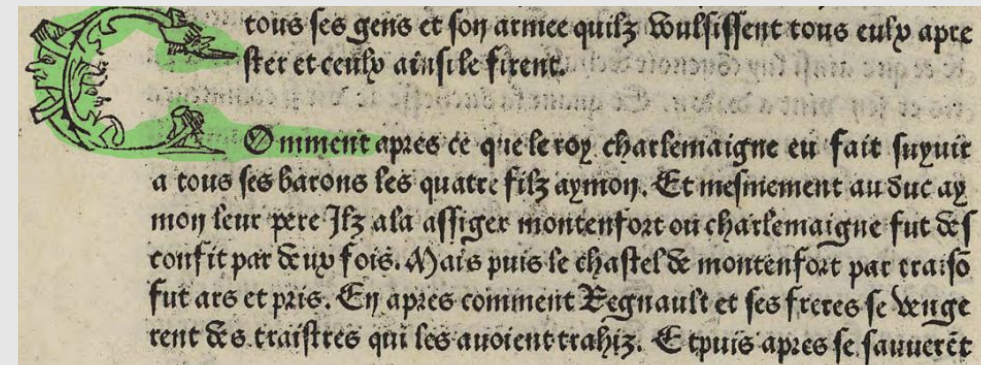 tous ses gens et son armee quilz voulsissent tous eulx apre
ster et ceulx ainsi le firent.
COmment apres ce que le roy charlemaigne eu fait suyuir
a tous ses barons les quatre filz aymon. Et mesmement au duc ay
mon leur pere Ilz ala assiger montenfort ou charlemaigne fut des
confit par deux fois. Mais puis le chastel de montenfort par traisõ
fut ars et pris. En apres comment Regnault et ses freres se venge
rent des traistres qui les auoient trahiz. Et puis apres se sauuerẽt